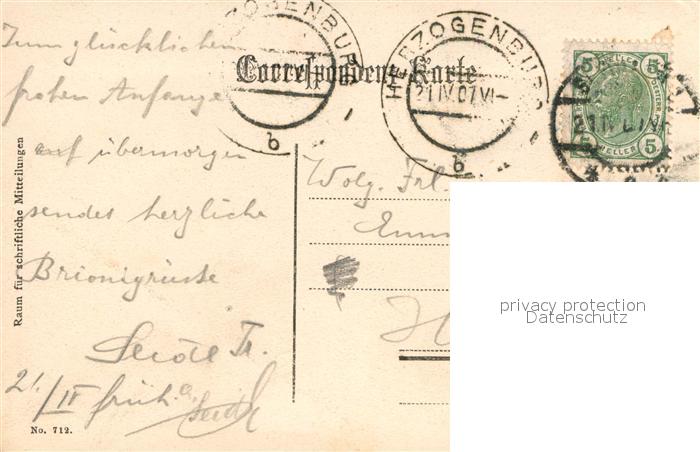 Zum glücklichen
frohen Anfange
auf übermorgen
sendet herzliche
Brionigrüsse
21./IV früh.
Raum für schriftliche Mitteilungen
No. 712.
HERZOGENBURG
b
Correspondenz-Karte
HERZOGENBURG
21 IV 07 VI
b
5 HELLER 5
5 HELLER 5
Wolg. Frl.
privacy protection
Datenschutz